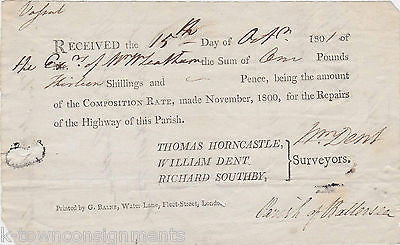 RECEIVED the 15th Day of 1801 of
the of Wm the Sum of One Pounds
Thirteen Shillings and Pence, being the amount
of the COMPOSITION RATE, made November, 1800, for the Repairs
of the Highway of this Parish.
THOMAS HORNCASTLE,
WILLIAM DENT,
RICHARD SOUTHBY,
Surveyors.
Wm Dent
Printed by G. BALNE, Water-Lane, Fleet-Street, London.
Parish of Battersea
k-townconsignments